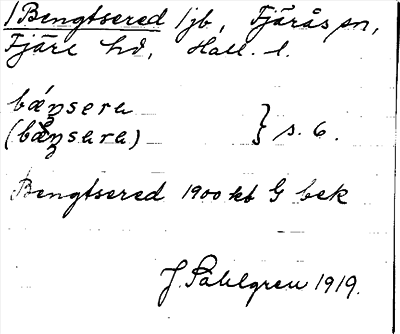 /Bengtsered /jb, Fjärås sn,
Fjäre hd, Hall. l.
bǽŋsera
(bǽŋsara) } s. 6.
Bengtsered 1900 kb G bek
J. Sahlgren 1919.